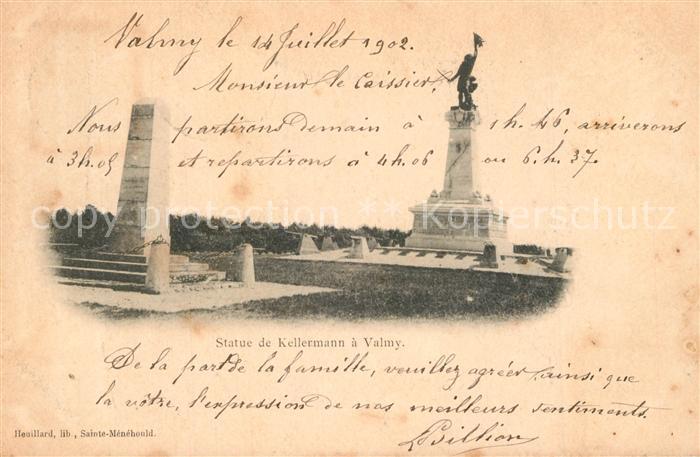 Valmy le 14 Juillet 1902.
Monsieur le Caissier,
Nous partirons demain à 1h. 46, arriverons
à 3h. 05 et repartirons à 4h. 06 ou 6h. 37.
copy protection ** © Kopierschutz
Statue de Kellermann à Valmy.
De la part de la famille, veuillez agréer, ainsi que
la vôtre, l'expression de nos meilleurs sentiments.
Heuillard, lib., Sainte-Ménéhould.